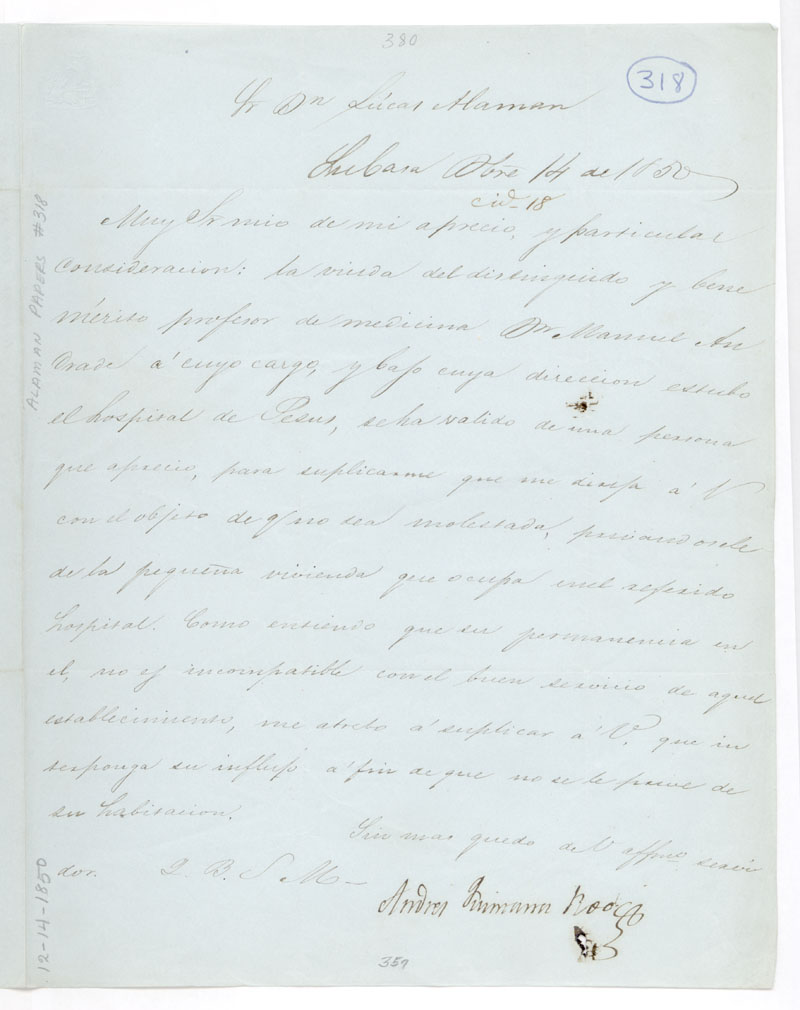 380
318
Sr Dn Lúcas Alaman
Su Casa Dbre 14 de 1850
cid- 18
Muy Sr mio de mi aprecio, y particular
consideracion: la viuda del distinguido y bene
mérito profesor de medicina Dn Manuel An
drade á cuyo cargo, y bajo cuya direccion estubo
el hospital de Jesus, se ha valido de una persona
que aprecio, para suplicarme que me dirija á V
con el objeto de q' no sea molestada, privandosele
de la pequeña vivienda que ocupa en el referido
hospital. Como entiendo que su permanencia en
el, no es incompatible con el buen servicio de aquel
establecimiento, me atrebo á suplicar á V, que in
terponga su influjo á fin de que no se le prive de
su habitacion.
Sin mas quedo de V affmo servi
dor. Q. B. S M-
Andres
359
ALAMAN PAPERS #318
12-14-1850